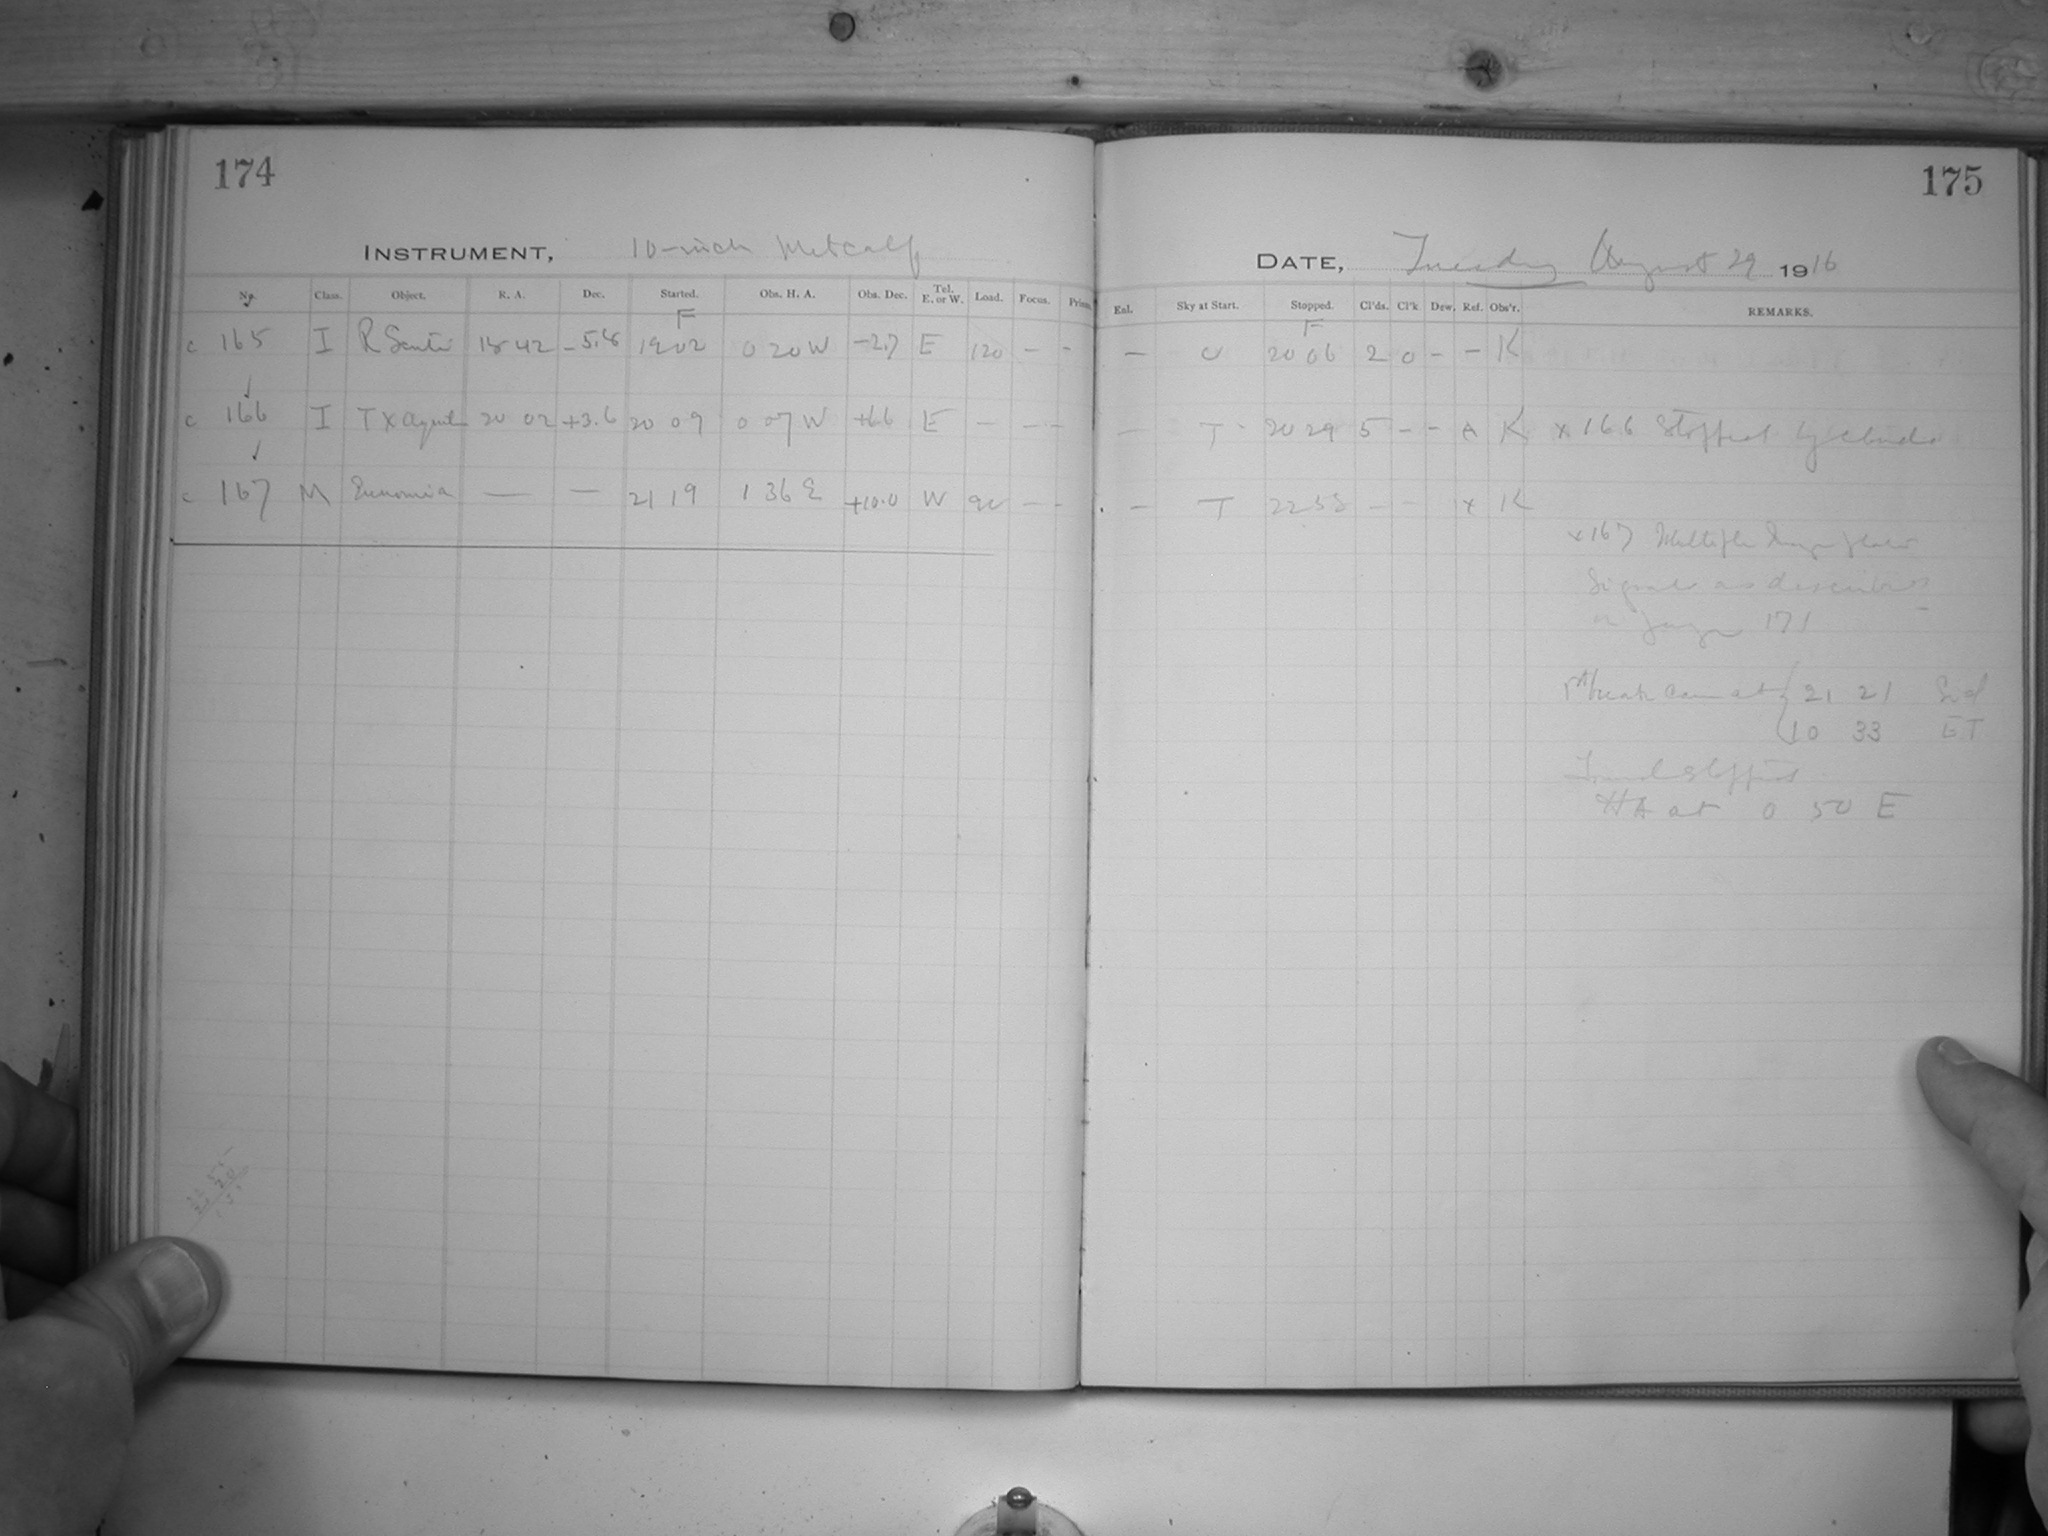 174
INSTRUMENT, 10-inch Metcalf
No. Class. Object. R. A. Dec. Started. Obs. H. A. Obs. Dec. Tel. E. or W. Load. Focus. Prism.
F
c 165 I R Scuti 18 42 -5.8 19 02 0 20 W -2.7 E 120 - -
c 166 I TX Aquil 20 02 +3.6 20 09 0 07 W +6.6 E - - -
c 167 M Eunomia — — 21 19 1 36 E +10.0 W 90 - -
175
DATE, Tuesday August 29 1916
Enl. Sky at Start. Stopped. Cl'ds. Cl'k Dew. Ref. Obs'r. REMARKS.
F
— 0 20 06 2 0 - - K
— T 20 29 5 - - x K x 166 Stopped by clouds
— T 22 53 - - x K
x 167 Multiple Image plate
Signals as described
on page 171
1st break came at 21 21 Sid
10 33 ET
Found stopped
HA at 0 50 E